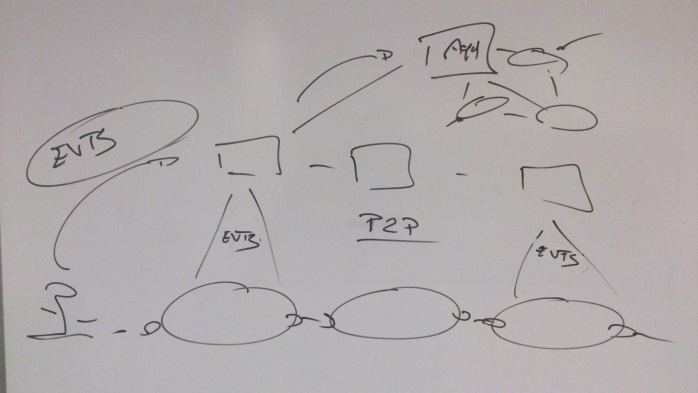 EVTS
EVTS
P2P
EVTS